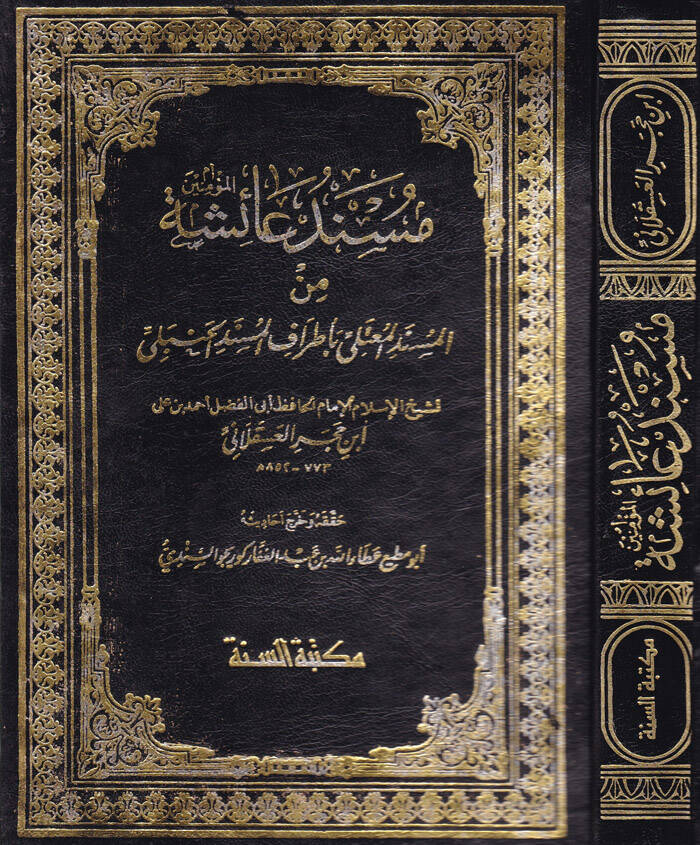 مُسْنَدُ عَائِشَة أم المؤمنين
مِنْ
المُسْنَدِ المُعْتَلِي بأطرَافِ المُسْنَدِ الحَنبَلِي
لشيخ الإسلام الإمام الحافظ أبى الفضل أحمد بن على
ابن حَجَر العَسْقَلَانِيّ
٧٧٣ - ٨٥٢ هـ
حَقّقَهُ وَخَرَّجَ أحَادِيثَهُ
أبو مطيع عطاء الله بن عبد الغفار كوريجو السِّنْدِيُّ
مكتبة السنة
ابن حَجَر العَسْقَلَانِيّ
مُسْنَدُ عَائِشَة أم المؤمنين
مكتبة السنة